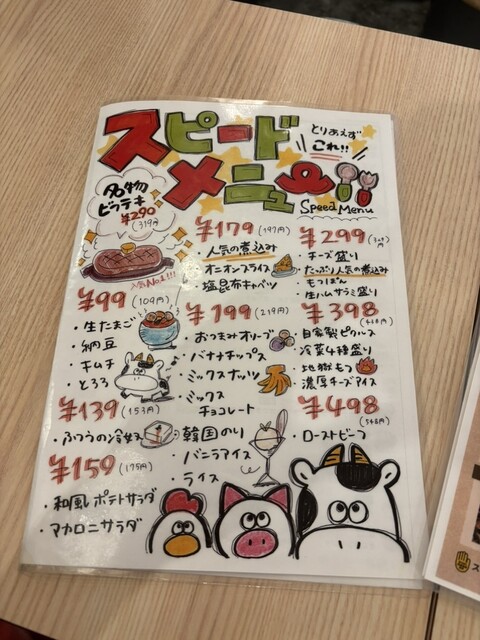 スピード
メニュー!!
とりあえず
これ!!
Speed Menu
名物
ビフテキ
¥290
(319円)
人気No.1!!!
¥99(109円)
・生たまご
・納豆
・キムチ
・とろろ
¥139(153円)
・ふつうの冷奴
¥159(175円)
・和風ポテトサラダ
・マカロニサラダ
¥179(197円)
・人気の煮込み
・オニオンスライス
・塩昆布キャベツ
¥199(219円)
・おつまみオリーブ
・バナナチップス
・ミックスナッツ
・ミックス
チョコレート
・韓国のり
・バニラアイス
・ライス
¥299
・チーズ盛り
・たっぷり人気の煮込み
・もつぽん
・生ハムサラミ盛り
¥398
(438円)
・自家製ピクルス
・冷菜4種盛り
・地獄もつ
・濃厚チーズアイス
¥498
(548円)
・ローストビーフ
ス